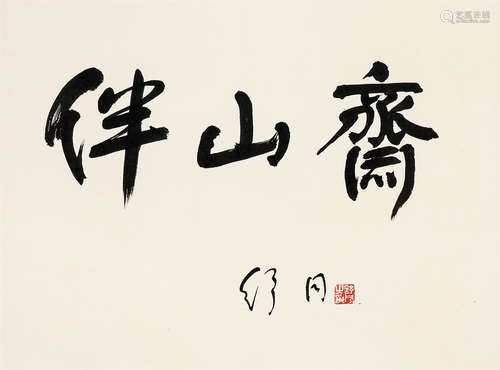 伴山齋
舒同